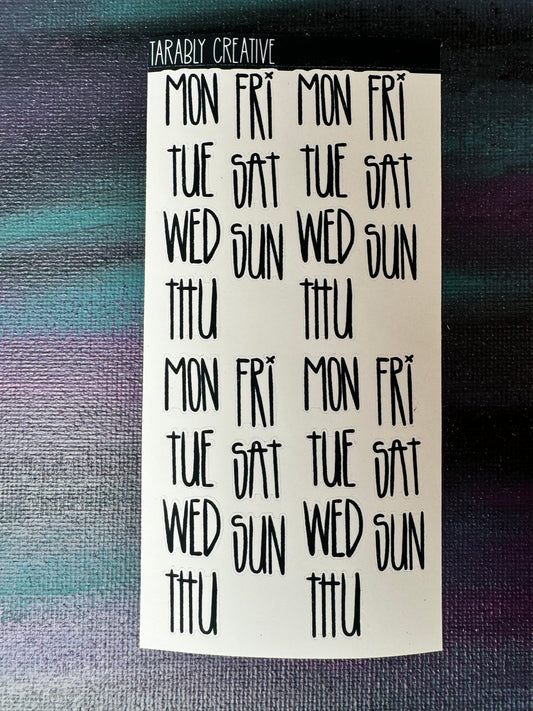 TARABLY CREATIVE
MON FRI MON FRI
TUE SAT TUE SAT
WED SUN WED SUN
THU THU
MON FRI MON FRI
TUE SAT TUE SAT
WED SUN WED SUN
THU THU